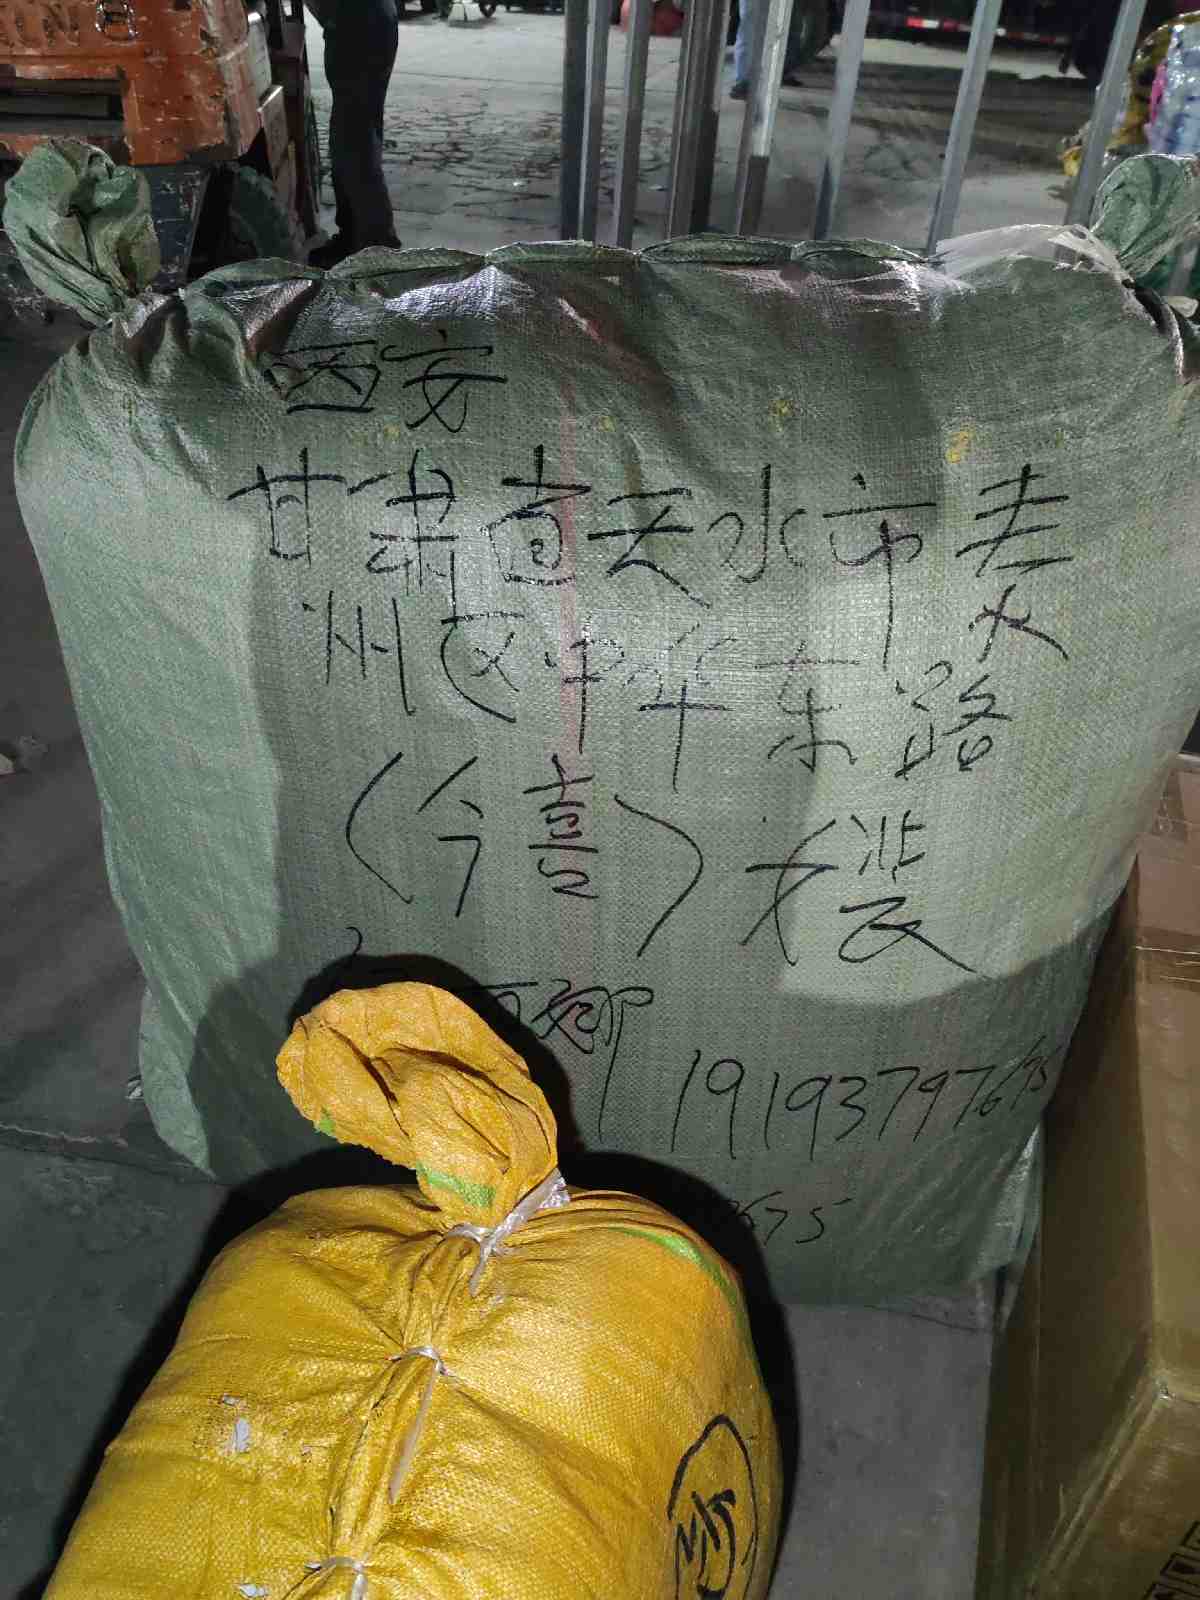 西安
甘肃省天水市秦
州区中华东路
(今喜)女装
娜
19193797675
675